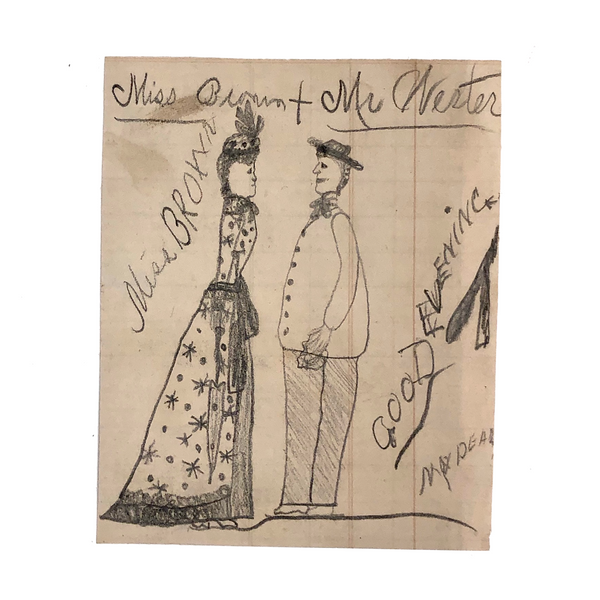 Miss Brown + Mr Wester
Miss BROWN
GOOD EVENING
MY DEAR